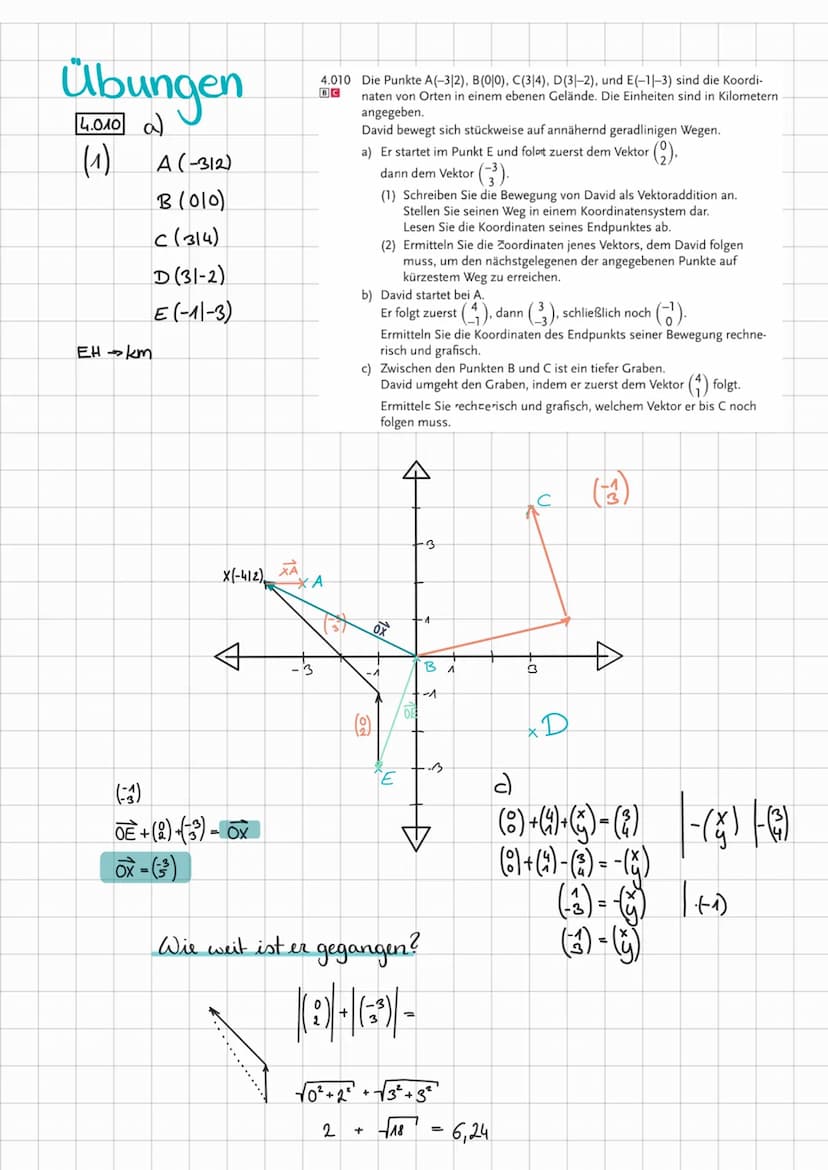 Übungen
4.010 a)
(1) A (-3|2)
B (0|0)
C (3|4)
D (3|-2)
E (-1|-3)
EH → km
4.010 Die Punkte A(–3|2), B(0|0), C(3|4), D(3|–2), und E(–1|–3) sind die Koordi-
B C naten von Orten in einem ebenen Gelände. Die Einheiten sind in Kilometern
angegeben.
David bewegt sich stückweise auf annähernd geradlinigen Wegen.
a) Er startet im Punkt E und folgt zuerst dem Vektor (0 2),
dann dem Vektor (–3 3).
(1) Schreiben Sie die Bewegung von David als Vektoraddition an.
Stellen Sie seinen Weg in einem Koordinatensystem dar.
Lesen Sie die Koordinaten seines Endpunktes ab.
(2) Ermitteln Sie die Koordinaten jenes Vektors, dem David folgen
muss, um den nächstgelegenen der angegebenen Punkte auf
kürzestem Weg zu erreichen.
b) David startet bei A.
Er folgt zuerst (4 –1), dann (3 –3), schließlich noch (–1 0).
Ermitteln Sie die Koordinaten des Endpunkts seiner Bewegung rechne-
risch und grafisch.
c) Zwischen den Punkten B und C ist ein tiefer Graben.
David umgeht den Graben, indem er zuerst dem Vektor (4 1) folgt.
Ermitteln Sie rechnerisch und grafisch, welchem Vektor er bis C noch
folgen muss.
C (-1 3)
3
X(-4|2) XA A
(-3 3) OX 1
-3 -1 B 1 3
-1
(0 2) OE
D
-3
E
(-1 -3)
OE + (0 2) + (-3 3) = OX
OX = (-3 5)
c)
(0 0) + (4 1) + (x y) = (3 4) | -(x y) | -(3 4)
(0 0) + (4 1) - (3 4) = -(x y)
(1 -3) = -(x y) | ·(-1)
(-1 3) = (x y)
Wie weit ist er gegangen?
|(0 2)| + |(-3 3)| =
√0² + 2² + √3² + 3²
2 + √18 = 6,24